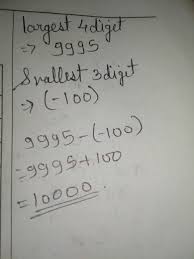 largest 4 diget
=> 9995
Smallest 3 diget
-> (-100)
9995-(-100)
=9995+100
=10000.